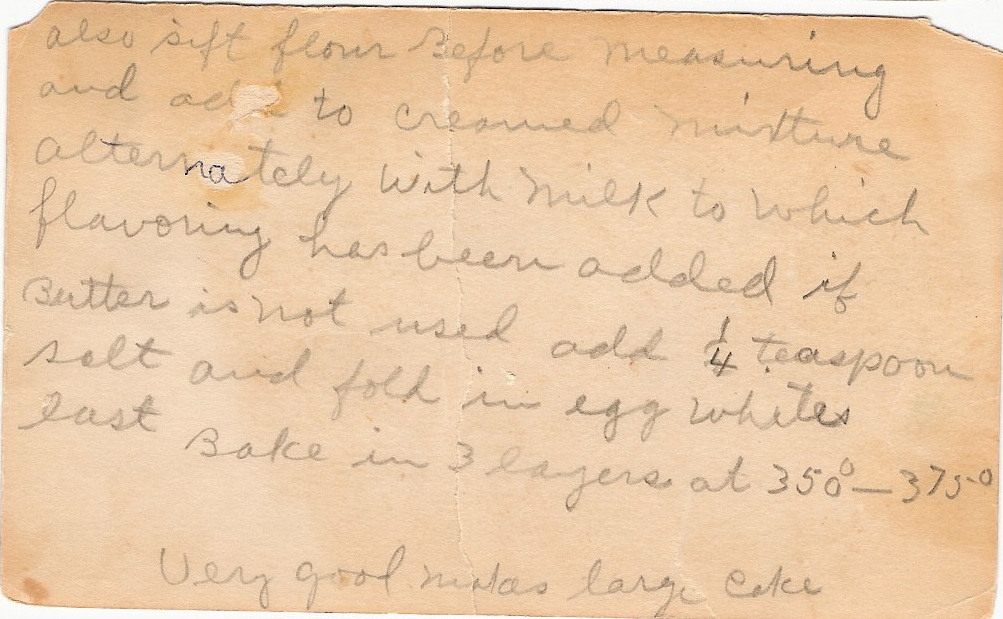 also sift flour Before measuring
and add to creamed mixture
alternately with milk to which
flavoring has been added if
Butter is not used add 1/4 teaspoon
salt and fold in egg whites
last Bake in 3 layers at 350° — 375°
Very good makes large cake